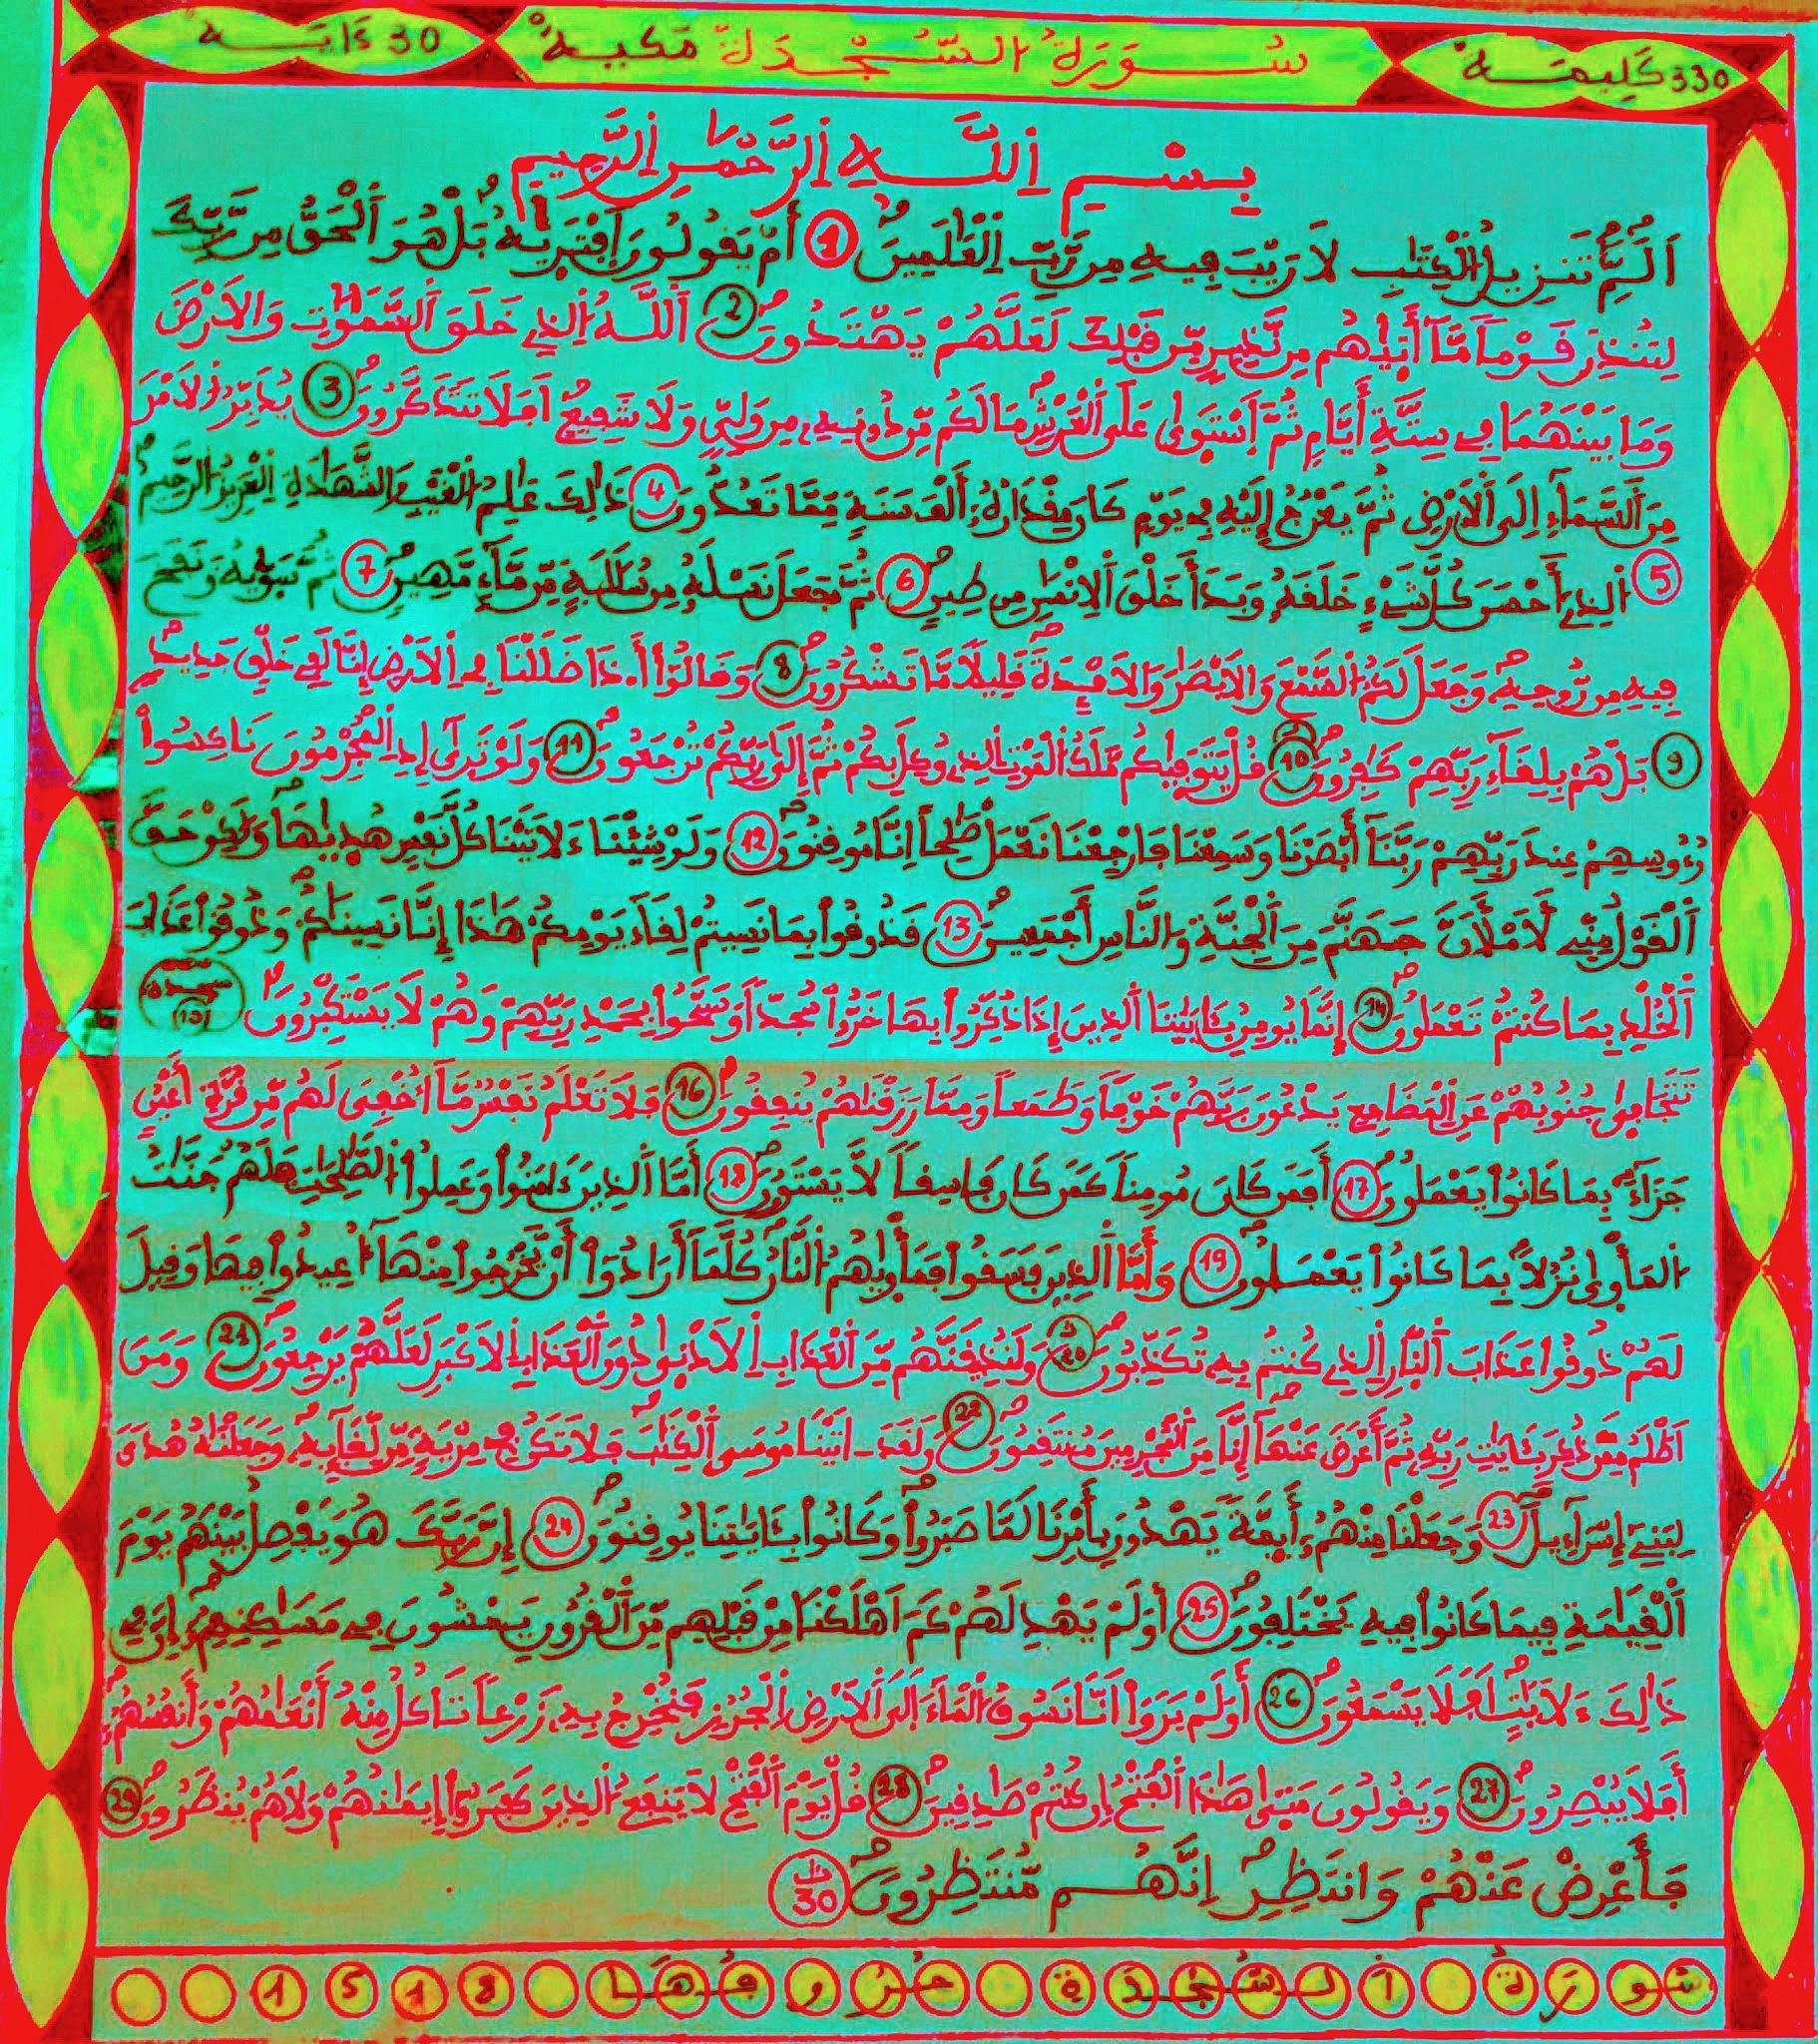 330 كَلِيمَة سُورَةُ السَّجْدَةِ مَكِّيَّةٌ 30 ءَايَة
بِسْمِ اِللَّهِ اِلرَّحْمَٰنِ اِلرَّحِيمِ
أَلَٓمِّٓ تَنزِيلُ اُلْكِتَٰبِ لَا رَيْبَ فِيهِ مِن رَّبِّ اِلْعَٰلَمِينَ 1 أَمْ يَقُولُونَ اَفْتَرَيٰهُ بَلْ هُوَ اَلْحَقُّ مِن رَّبِّكَ
لِتُنذِرَ قَوْماً مَّآ أَتَيٰهُم مِّن نَّذِيرٍ مِّن قَبْلِكَ لَعَلَّهُمْ يَهْتَدُونَ 2 اَللَّهُ اُلذِے خَلَقَ اَلسَّمَٰوَٰتِ وَالَارْضَ
وَمَا بَيْنَهُمَا فِے سِتَّةِ أَيَّامٍ ثُمَّ اَسْتَوَىٰ عَلَى اَلْعَرْشِ مَا لَكُم مِّن دُونِهِ مِنْ وَلِيٍّ وَلَا شَفِيعٍ اَفَلَا تَتَذَكَّرُونَ 3 يُدَبِّرُ اُلَامْرَ
مِنَ اَلسَّمَآءِ اِلَى اَلَارْضِ ثُمَّ يَعْرُجُ إِلَيْهِ فِے يَوْمٍ كَانَ مِقْدَارُهُ أَلْفَ سَنَةٍ مِّمَّا تَعُدُّونَ 4 ذَٰلِكَ عَٰلِمُ اُلْغَيْبِ وَالشَّهَٰدَةِ اِلْعَزِيزُ اُلرَّحِيمُ
5 اُلذِے أَحْسَنَ كُلَّ شَےْءٍ خَلَقَهُ وَبَدَأَ خَلْقَ اَلِانْسَٰنِ مِن طِينٍ 6 ثُمَّ جَعَلَ نَسْلَهُ مِن سُلَٰلَةٍ مِّن مَّآءٍ مَّهِينٍ 7 ثُمَّ سَوّٜيٰهُ وَنَفَخَ
فِيهِ مِن رُّوحِهِ وَجَعَلَ لَكُمُ اُلسَّمْعَ وَالَابْصَٰرَ وَالَافْـِٕدَةَ قَلِيلاً مَّا تَشْكُرُونَ 8 وَقَالُوٓاْ أَ.ذَا ضَلَلْنَا فِے اِلَارْضِ إِنَّا لَفِے خَلْقٍ جَدِيدٍ
9 بَلْ هُم بِلِقَآءِ رَبِّهِمْ كَٰفِرُونَ 10 قُلْ يَتَوَفّٜيٰكُم مَّلَكُ اُلْمَوْتِ اِلذِے وُكِّلَ بِكُمْ ثُمَّ إِلَىٰ رَبِّكُمْ تُرْجَعُونَ 11 وَلَوْ تَرَىٰٓ إِذِ اِلْمُجْرِمُونَ نَاكِسُواْ
رُءُوسِهِمْ عِندَ رَبِّهِمْ رَبَّنَآ أَبْصَرْنَا وَسَمِعْنَا فَارْجِعْنَا نَعْمَلْ صَٰلِحاً اِنَّا مُوقِنُونَ 12 وَلَوْ شِئْنَا ءَلَاتَيْنَا كُلَّ نَفْسٍ هُدٜيٰهَا وَلَٰكِنْ حَقَّ
اَلْقَوْلُ مِنِّے لَأَمْلَأَنَّ جَهَنَّمَ مِنَ اَلْجِنَّةِ وَالنَّاسِ أَجْمَعِينَ 13 فَذُوقُواْ بِمَا نَسِيتُمْ لِقَآءَ يَوْمِكُمْ هَٰذَا إِنَّا نَسِينَٰكُمْ وَذُوقُواْ عَذَابَ
اَلْخُلْدِ بِمَا كُنتُمْ تَعْمَلُونَ 14 إِنَّمَا يُومِنُ بِـَٔايَٰتِنَا اَلذِينَ إِذَا ذُكِّرُواْ بِهَا خَرُّواْ سُجَّداً وَسَبَّحُواْ بِحَمْدِ رَبِّهِمْ وَهُمْ لَا يَسْتَكْبِرُونَ سجدة 15
تَتَجَافَىٰ جُنُوبُهُمْ عَنِ اِلْمَضَاجِعِ يَدْعُونَ رَبَّهُمْ خَوْفاً وَطَمَعاً وَمِمَّا رَزَقْنَٰهُمْ يُنفِقُونَ 16 فَلَا تَعْلَمُ نَفْسٌ مَّآ أُخْفِىَ لَهُم مِّن قُرَّةِ أَعْيُنٍ
جَزَآءً بِمَا كَانُواْ يَعْمَلُونَ 17 أَفَمَن كَانَ مُومِناً كَمَن كَانَ فَاسِقاً لَّا يَسْتَوُۥنَ 18 أَمَّا اَلذِينَ ءَامَنُواْ وَعَمِلُواْ اُلصَّٰلِحَٰتِ فَلَهُمْ جَنَّٰتُ
اُلْمَأْوَىٰ نُزُلاً بِمَا كَانُواْ يَعْمَلُونَ 19 وَأَمَّا اَلذِينَ فَسَقُواْ فَمَأْوٜيٰهُمُ اُلنَّارُ كُلَّمَآ أَرَادُوٓاْ أَنْ يَّخْرُجُواْ مِنْهَآ أُعِيدُواْ فِيهَا وَقِيلَ
لَهُمْ ذُوقُواْ عَذَابَ اَلنَّارِ اِلذِے كُنتُم بِهِ تُكَذِّبُونَ 20 وَلَنُذِيقَنَّهُم مِّنَ اَلْعَذَابِ اِلَادْنَىٰ دُونَ اَلْعَذَابِ اِلَاكْبَرِ لَعَلَّهُمْ يَرْجِعُونَ 21 وَمَنَ
اَظْلَمُ مِمَّن ذُكِّرَ بِـَٔايَٰتِ رَبِّهِ ثُمَّ أَعْرَضَ عَنْهَآ إِنَّا مِنَ اَلْمُجْرِمِينَ مُنتَقِمُونَ 22 وَلَقَدَ اتَيْنَا مُوسَى اَلْكِتَٰبَ فَلَا تَكُن فِے مِرْيَةٍ مِّن لِّقَآئِهِ وَجَعَلْنَٰهُ هُدىً
لِبَنِےٓ إِسْرَآءِيلَ 23 وَجَعَلْنَا مِنْهُمُ أَئِمَّةً يَهْدُونَ بِأَمْرِنَا لَمَّا صَبَرُواْ وَكَانُواْ بِـَٔايَٰتِنَا يُوقِنُونَ 24 إِنَّ رَبَّكَ هُوَ يَفْصِلُ بَيْنَهُمْ يَوْمَ
اَلْقِيَٰمَةِ فِيمَا كَانُواْ فِيهِ يَخْتَلِفُونَ 25 أَوَلَمْ يَهْدِ لَهُمْ كَمَ اَهْلَكْنَا مِن قَبْلِهِم مِّنَ اَلْقُرُونِ يَمْشُونَ فِے مَسَٰكِنِهِمُ إِنَّ فِے
ذَٰلِكَ ءَلَايَٰتٍ اَفَلَا يَسْمَعُونَ 26 أَوَلَمْ يَرَوَاْ اَنَّا نَسُوقُ اُلْمَآءَ اِلَى اَلَارْضِ اِلْجُرُزِ فَنُخْرِجُ بِهِ زَرْعاً تَاكُلُ مِنْهُ أَنْعَٰمُهُمْ وَأَنفُسُهُمُ
أَفَلَا يُبْصِرُونَ 27 وَيَقُولُونَ مَتَىٰ هَٰذَا اَلْفَتْحُ إِن كُنتُمْ صَٰدِقِينَ 28 قُلْ يَوْمَ اَلْفَتْحِ لَا يَنفَعُ اُلذِينَ كَفَرُوٓاْ إِيمَٰنُهُمْ وَلَا هُمْ يُنظَرُونَ 29
فَأَعْرِضْ عَنْهُمْ وَانتَظِرِ اِنَّهُم مُّنتَظِرُونَ 30
سُورَةُ اَلسَّجْدَةِ حُرُوفُهَا 1518